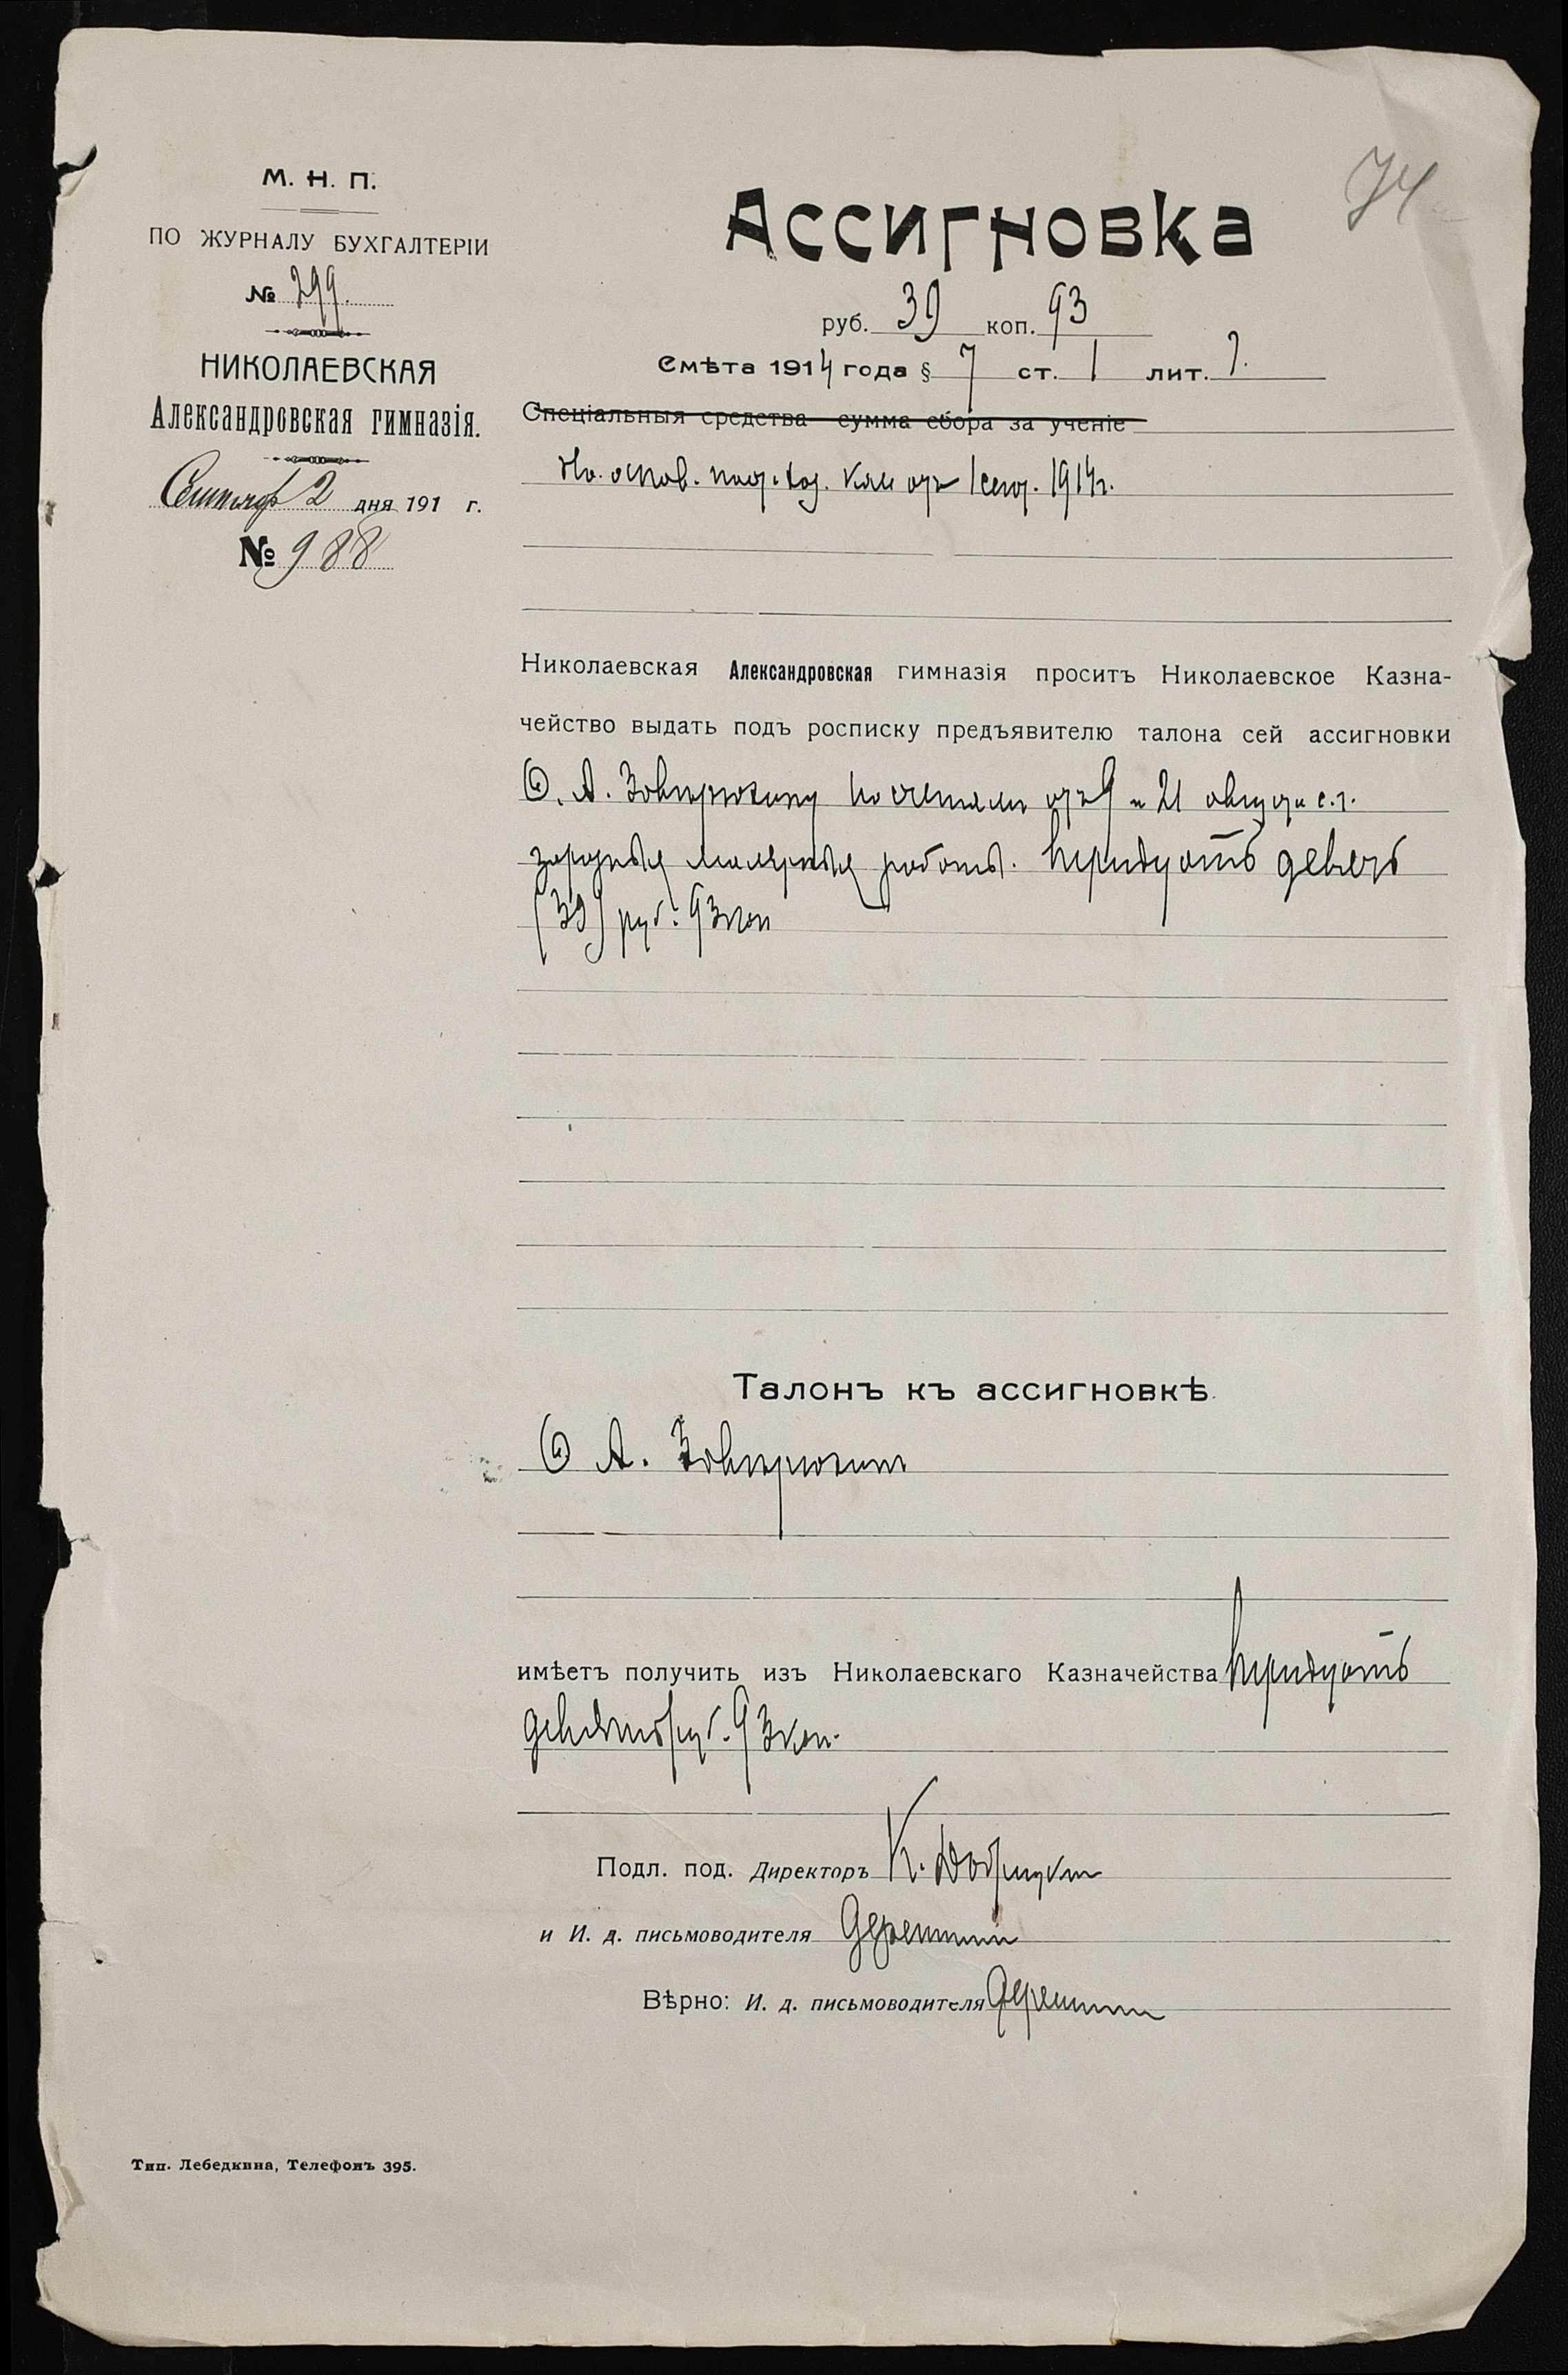 74
М. Н. П.
ПО ЖУРНАЛУ БУХГАЛТЕРІИ
№ 299.
НИКОЛАЕВСКАЯ
Александровская гимназія.
Сентября 2 дня 191 г.
№ 988
Ассигновка
руб. 39 коп. 93
Смѣта 1914 года § 7 ст. 1 лит.
Спеціальныя средства сумма сбора за ученіе
На основ. пост. хоз. Ком отъ 1 сент. 1914 г.
Николаевская Александровская гимназія проситъ Николаевское Казна-
чейство выдать подъ росписку предъявителю талона сей ассигновки
А. по счетамъ отъ 9 и 21 августа с. г.
за разныя малярныя работы. тридцать девять
(39) руб. 93 коп
Талонъ къ ассигновкѣ.
А.
имѣетъ получить изъ Николаевскаго Казначейства тридцать
девять руб. 93 коп.
Подл. под. Директоръ К.
и И. д. письмоводителя
Вѣрно: И. д. письмоводителя
Тип. Лебедкина, Телефонъ 395.